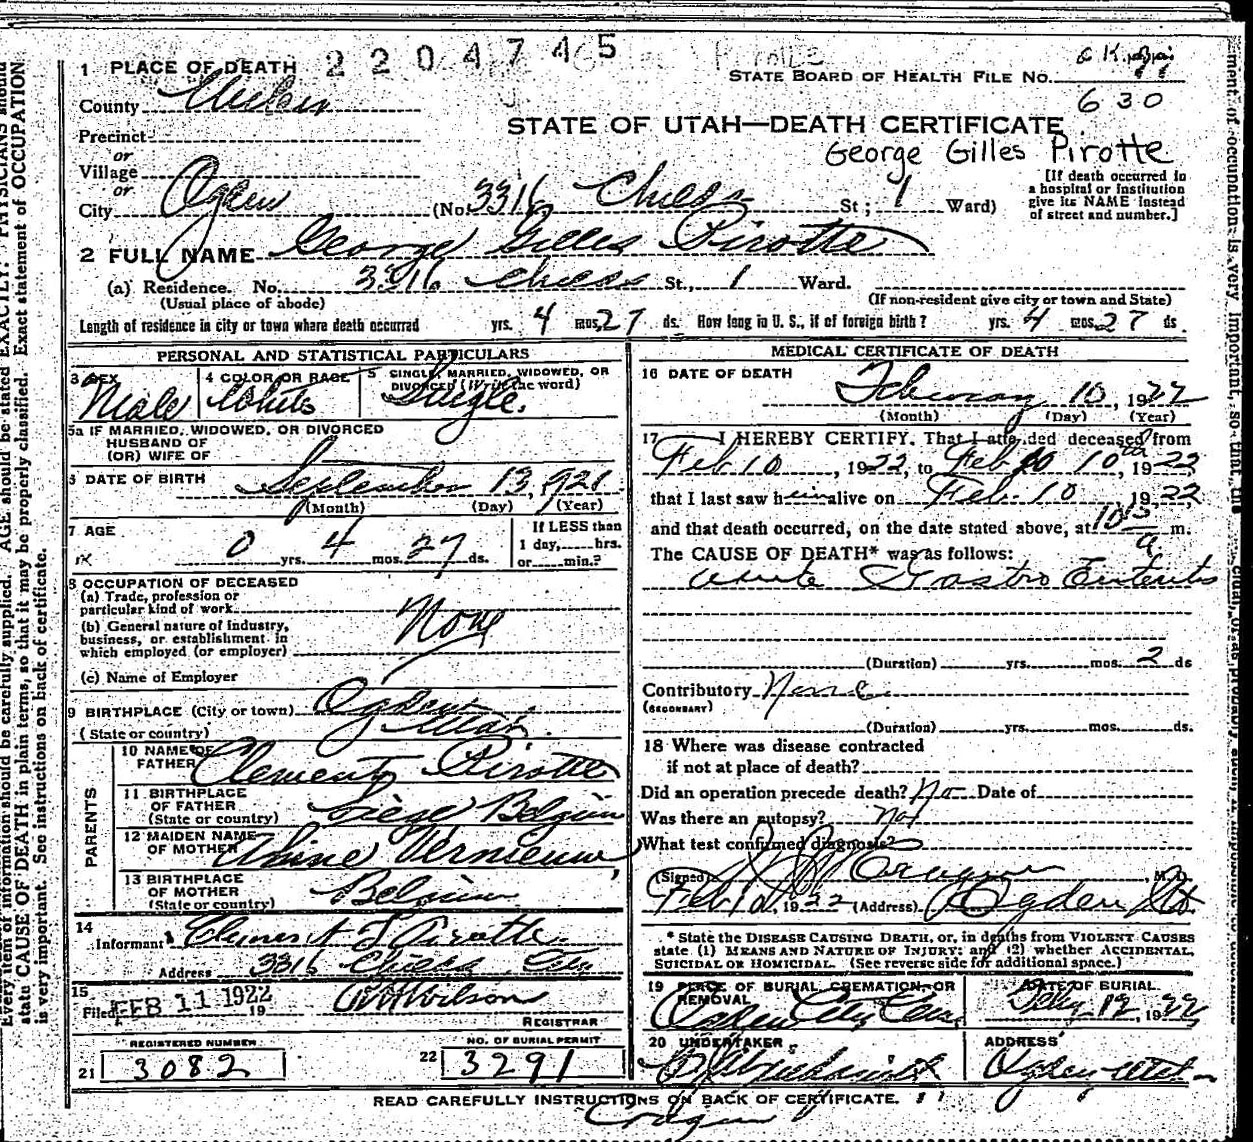 2204745
1 PLACE OF DEATH
STATE BOARD OF HEALTH FILE NO.
County Weber
630
Precinct
STATE OF UTAH—DEATH CERTIFICATE
or
George Gilles Pirotte
Village
or
City Ogden (No. 3316 Childs St; 1 Ward)
[If death occurred in a hospital or institution give its NAME instead of street and number.]
2 FULL NAME George Gilles Pirotte
(a) Residence. No. 3316 Childs St., 1 Ward.
(Usual place of abode) (If non-resident give city or town and State)
Length of residence in city or town where death occurred yrs. 4 mos. 27 ds. How long in U. S., if of foreign birth? yrs. 4 mos. 27 ds
PERSONAL AND STATISTICAL PARTICULARS
3 SEX Male
4 COLOR OR RACE White
5 SINGLE, MARRIED, WIDOWED, OR DIVORCED (Write the word) Single.
5a IF MARRIED, WIDOWED, OR DIVORCED
HUSBAND OF
(OR) WIFE OF
6 DATE OF BIRTH September 13, 1921
(Month) (Day) (Year)
7 AGE 0 yrs. 4 mos. 27 ds.
If LESS than 1 day, hrs. or min.?
8 OCCUPATION OF DECEASED
(a) Trade, profession or particular kind of work
(b) General nature of industry, business, or establishment in which employed (or employer)
None
(c) Name of Employer
9 BIRTHPLACE (City or town) Ogden
(State or country) Utah.
PARENTS
10 NAME OF FATHER Clement Pirotte
11 BIRTHPLACE OF FATHER (State or country) Liege Belgium
12 MAIDEN NAME OF MOTHER
13 BIRTHPLACE OF MOTHER (State or country) Belgium
14
Informant Clement Pirotte
Address 3316 Childs
15
Filed FEB 11 1922 19 Wilson
REGISTRAR
REGISTERED NUMBER
21 3082
NO. OF BURIAL PERMIT
22 3291
MEDICAL CERTIFICATE OF DEATH
16 DATE OF DEATH
February 10, 1922
(Month) (Day) (Year)
17 I HEREBY CERTIFY. That I attended deceased from
Feb 10, 1922, to Feb 10th, 1922
that I last saw him alive on Feb. 10 1922,
and that death occurred, on the date stated above, at 10 15 a m.
The CAUSE OF DEATH* was as follows:
Acute Gastro Enteritis
(Duration) yrs. mos. 2 ds
Contributory None
(SECONDARY)
(Duration) yrs. mos. ds.
18 Where was disease contracted
if not at place of death?
Did an operation precede death? No Date of
Was there an autopsy? No
What test confirmed diagnosis?
(Signed) M. D.
Feb 12, 1922 (Address) Ogden Ut
* State the DISEASE CAUSING DEATH, or, in deaths from VIOLENT CAUSES
state (1) MEANS AND NATURE OF INJURY; and (2) whether ACCIDENTAL,
SUICIDAL OR HOMICIDAL. (See reverse side for additional space.)
19 PLACE OF BURIAL, CREMATION, OR REMOVAL
Ogden City Cem.
DATE OF BURIAL
Feby 12, 1922
20 UNDERTAKER
ADDRESS
Ogden Utah
READ CAREFULLY INSTRUCTIONS ON BACK OF CERTIFICATE.
Every item of information should be carefully supplied. AGE should be stated EXACTLY. PHYSICIANS should
state CAUSE OF DEATH in plain terms, so that it may be properly classified. Exact statement of OCCUPATION
is very important. See instructions on back of certificate.